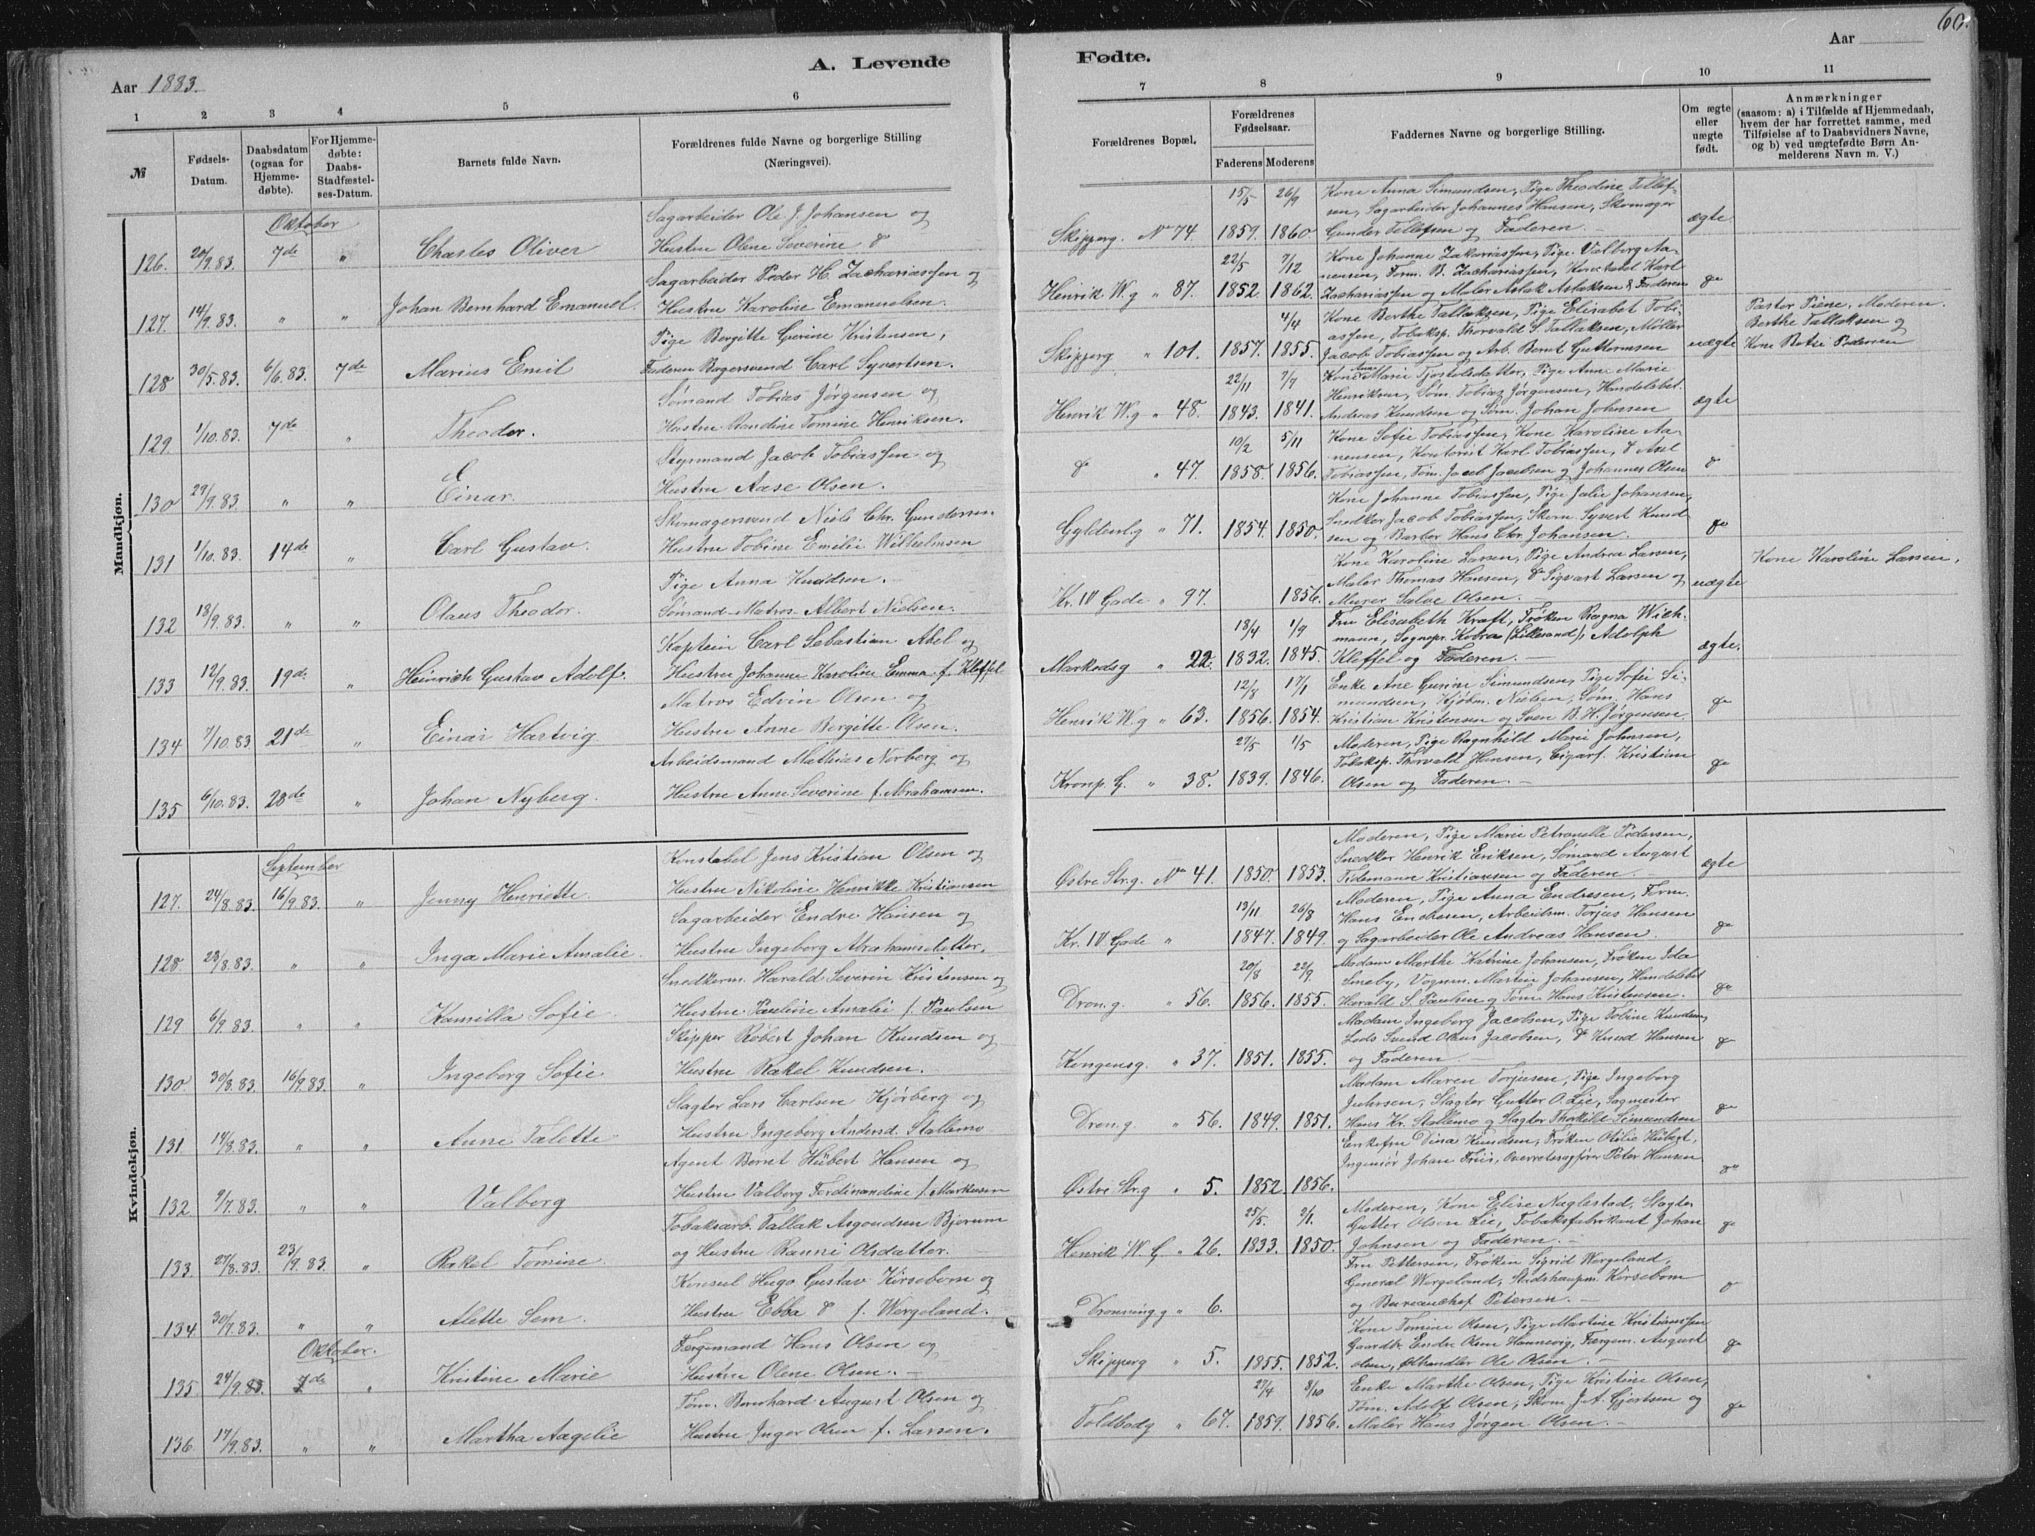 60.
A. Levende
Fødte.
Aar 1883.
Aar
1 2 3 4 5 6
7 8 9 10 11
№
Fødsels-Datum.
Daabsdatum (ogsaa for Hjemmedøbte).
For Hjemmedøbte: Daabs-Stadfæstelses-Datum.
Barnets fulde Navn.
Forældrenes fulde Navne og borgerlige Stilling (Næringsvei).
Forældrenes Bopæl.
Forældrenes Fødselsaar.
Faderens Moderens
Faddernes Navne og borgerlige Stilling.
Om ægte eller uægte født.
Anmærkninger
(saasom: a) i Tilfælde af Hjemmedaab, hvem der har forrettet samme, med Tilføielse af to Daabsvidners Navne, og b) ved uægtefødte Børn Anmelderens Navn m. V.)
Mandkjøn.
Oktober
Sagarbeider Ole J. Johansen og
15/5 26/9 Kone Anna Simundsen, Pige Theodine Tellef-
sen, Sagarbeider Johannes Hansen, Skomager
126. 20/9.83. 7de " Charles Oliver Hustru Olene Severine d
Skipperg. No 74. 1859. 1860 Gunder Tellefsen og Faderen. ægte
Sagarbeider Peder H. Zachariassen og
22/5 7/12 Kone Johanne Zakariassen, Pige Valborg Aa-
nensen, Form. B. Zachariassen, Konstabel Karl
127. 14/9.83. " " Johan Bernhard Emanuel. Hustru Karoline Emanuelsen.
Henrik W.g " 87. 1852. 1862. Zachariassen og Maler Aslak Aslaksen & Faderen do
Pige Bergitte Gurine Kristensen,
4/4 Kone Berthe Tallaksen, Pige Elisabet Tobi-
assen, Tobaksp. Thorvald S. Tallaksen, Møller
Pastor Piene, Moderen.
Berthe Tallaksen og
128 30/5.83. 6/6.83. 7de Marius Emil Faderen Bagersvend Carl Syvertsen.
Skipperg " 101. 1857. 1855. Jacob Tobiassen og Arb. Bernt Guttormsen uægte Kone Petre Pedersen
Sømand Tobias Jørgensen og
22/11 7/7 Kone Anne Marie Tjostolsdatter, Pige Anne Marie
Henriksen, Søm. Tobias Jørgensen, Handelsbet.
129. 1/10.83. 7de " Theodor. Hustru Randine Tomine Henriksen.
Henrik W.g " 48. 1843. 1841. Andreas Knudsen og Søm. Johan Johnsen ægte
Styrmand Jacob Tobiassen og
10/2 5/11 Kone Sofie Tobiassen, Kone Karoline Aa-
nensen, Kontorist Karl Tobiassen, d Axel
130 29/9.83. " " Einar. Hustru Aase Olsen.
do " 47. 1858. 1856. Tobiassen, Tøm. Jacob Jacobsen og Johannes Olsen d
Skomagersvend Niels Chr. Gundersen
Kone Johanne Tobiassen, Pige Julie Johansen,
Snedker Jacob Tobiassen, Skom Syvert Knud-
131 1/10.83. 14de " Carl Gustav. Hustru Tobine Emilie Wilhelmsen
Gyldenl.g " 71. 1854. 1850. sen og Barber Hans Chr. Johansen. do
Pige Anna Knudsen.
Kone Karoline Larsen, Pige Andrea Larsen,
Maler Thomas Hansen, d Sigvart Larsen og
Kone Karoline Larsen.
132 18/9.83. " " Olaus Theodor. Sømand-Matros Albert Nielsen.
Kr. IV Gade " 97. 1856. Murer Salve Olsen. uægte
Kaptein Carl Sebastian Abel og
18/4 1/9 Fru Elisabeth Kraft, Frøken Ragna Wich-
mann, Sognepr. Kobro (Lillesand), Adolph
133 12/9.83. 19de " Heinrich Gustav Adolf. Hustru Johanne Karoline Emma f. Kleffel
Markedsg " 22. 1832. 1845. Kleffel og Faderen. ægte.
Matros Edvin Olsen og
12/8 17/1 Enke Ane Gurine Simundsen, Pige Sofie Si-
mundsen, Kjøbm. Nielsen, Søm. Hans
134 7/10.83 21de " Einar Hartvig Hustru Anne Bergitte Olsen.
Henrik W.g " 63. 1856. 1854. Kristian Kristensen og Sven B. H. Jørgensen do
Arbeidsmand Mathias Norberg og
27/5 1/5 Moderen, Pige Ragnhild Marie Johnsen,
Tobaksp. Thorvald Hansen, Cigarf. Kristian
135 6/10.83. 28de " Johan Nyberg. Hustru Anne Severine f. Abrahamsen.
Kronp. G. " 38. 1839. 1846. Olsen og Faderen. do
Kvindekjøn.
September
Konstabel Jens Kristian Olsen og
Moderen, Pige Marie Petronelle Pedersen,
Snedker Henrik Eriksen, Sømand August
127. 24/8.83. 16/9.83. " Jenny Henriette Hustru Nikoline Henrikke Kristiansen
Østre Str.g. No 41. 1850. 1853. Tidemann Kristiansen og Faderen. ægte
Sagarbeider Endre Hansen og
13/11 26/8 Moderen, Pige Anna Endresen, Form.
Hans Endresen, Arbeidsm. Torjus Hansen
128. 23/8.83. " " Inga Marie Amalie. Hustru Ingeborg Abrahamsdatter.
Kr. IV Gade " 1847. 1849. og Sagarbeider Ole Andreas Hansen. do
Snedkerm. Harald Severin Kristensen og
20/8 22/9 Madam Marthe Katrine Johansen, Frøken Ida
Smeby, Vognm. Martin Johansen, Handelsbet
129 6/9.83. " " Kamilla Sofie. Hustru Pauline Amalie f. Paulsen
Dron.g. " 56. 1856. 1855. Harald S. Paulsen og Tøm. Hans Kristensen. do
Skipper Robert Johan Knudsen og
Madam Ingeborg Jacobsen, Pige Tobine Knudsen,
Lods Svend Olaus Jacobsen, d Knud Hansen
130. 30/8.83. 16/9.83. " Ingeborg Sofie. Hustru Rakel Knudsen.
Kongensg. " 37. 1851. 1855. og Faderen. do
Slagter Lars Carlsen Kjørberg og
Madam Maren Torjusen, Pige Ingeborg
Juhrsen, Slagter Gutter O. Lie, Sagmester
131. 19/8.83. " " Anne Talette Hustru Ingeborg Andersd. Stallemo
Dron.g. " 56. 1849. 1851. Hans Kr. Stallemo og Slagter Thorkild Simundsen do
Agent Bernt Hübert Hansen og
Enkefru Dina Knudsen, Frøken Otilie Hübert,
Ingeniør Johan Friis, Overretssagfører Peter Hansen
132. 9/7.83. " " Valborg Hustru Valborg Ferdinandine f. Markusen
Østre Str.g " 5. 1852. 1856. do
Tobaksarb. Tallak Asgoudsen Bjorum
25/5. 2/1. Moderen, Kone Elise Naglestad, Slagter
Gutter Olsen Lie, Tobaksfabrikant Johan
133. 27/8.83. 23/9.83. " Rakel Tomine og Hustru Ranni Olsdatter.
Henrik W. G " 26. 1833. 1850. Johnsen og Faderen. do
Konsul Hugo Gustav Kirsebom og
Fru Pettersen, Frøken Sigrid Wergeland,
General Wergeland, Stadshauptm. Kirsebom
134 30/7.83. " " Alette Sem. Hustru Ebba d f. Wergeland.
Dronningg " 6. og Bureauchef Petersen. d
Oktober.
Færgemand Hans Olsen og
Kone Tomine Olsen, Pige Martine Kristiansen
Gaardbr. Endre Olsen Hannevig, Færgem. August
135. 24/9.83. 7de " Kristine Marie Hustru Olene Olsen.
Skipperg " 5. 1855. 1852. Olsen, Ølhandler Ole Olsen. do
Tøm. Bernhard August Olsen og
29/4 8/10 Enke Marthe Olsen, Pige Kristine Olsen,
Tøm. Adolf Olsen, Skom J. A. Gjertsen og
136 17/9.83. " " Martha Aagelie Hustru Inger Olsen f. Larsen.
Toldbodg " 67. 1859. 1856. Maler Hans Jørgen Olsen. do